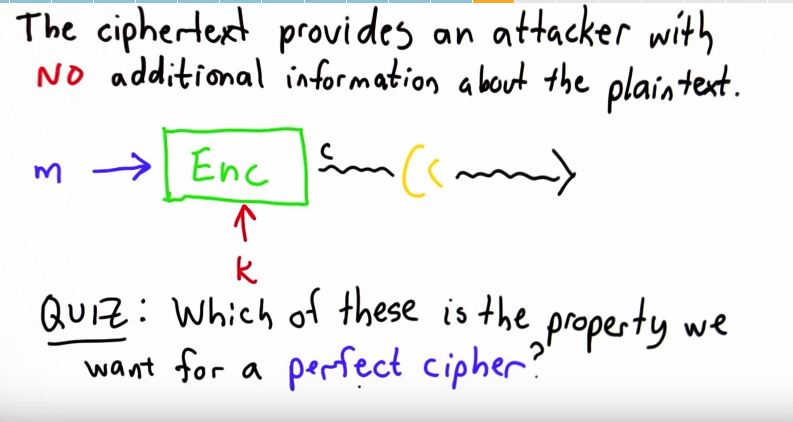 The ciphertext provides an attacker with
NO additional information about the plaintext.
m Enc c
k
QUIZ: Which of these is the property we
want for a perfect cipher?